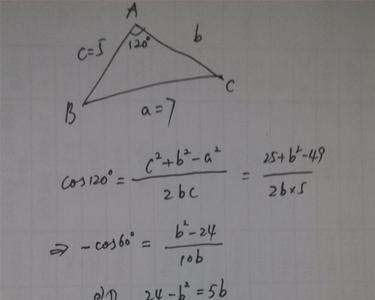 A
c=5
120°
b
B
C
a=7
cos120° = (c²+b²-a²)/(2bc) = (25+b²-49)/(2b×5)
⇒ -cos60° = (b²-24)/(10b)
24-b²=5b